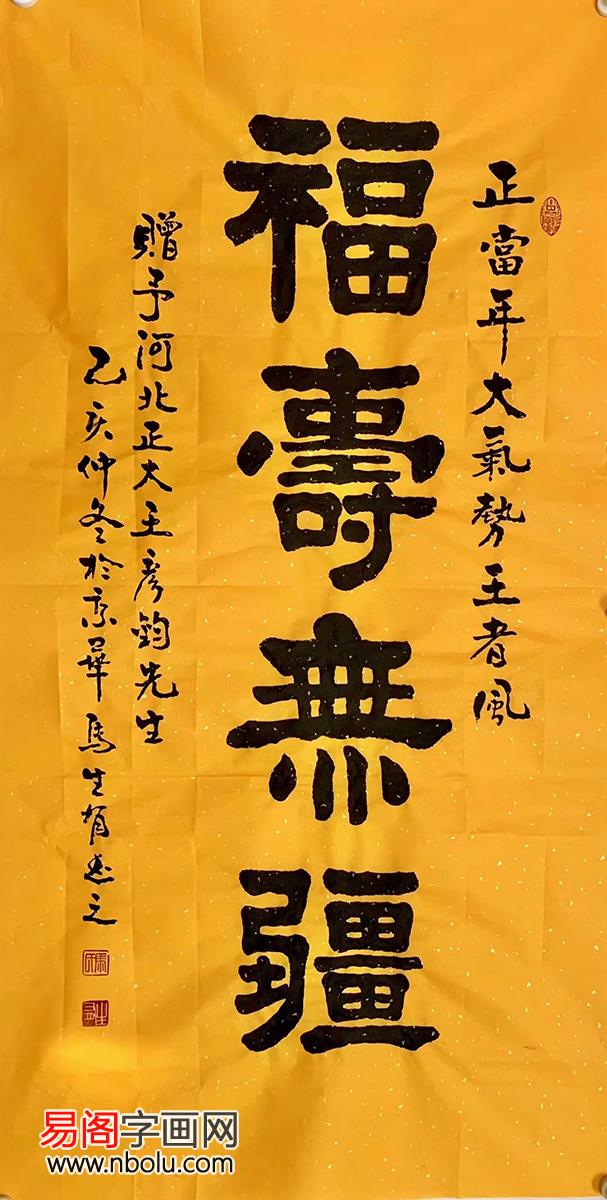 正當年大氣勢王者風
福壽無疆
贈予河北正大王彦鈞先生
己亥仲冬於京華馬生有書之
易阁字画网
www.nbolu.com